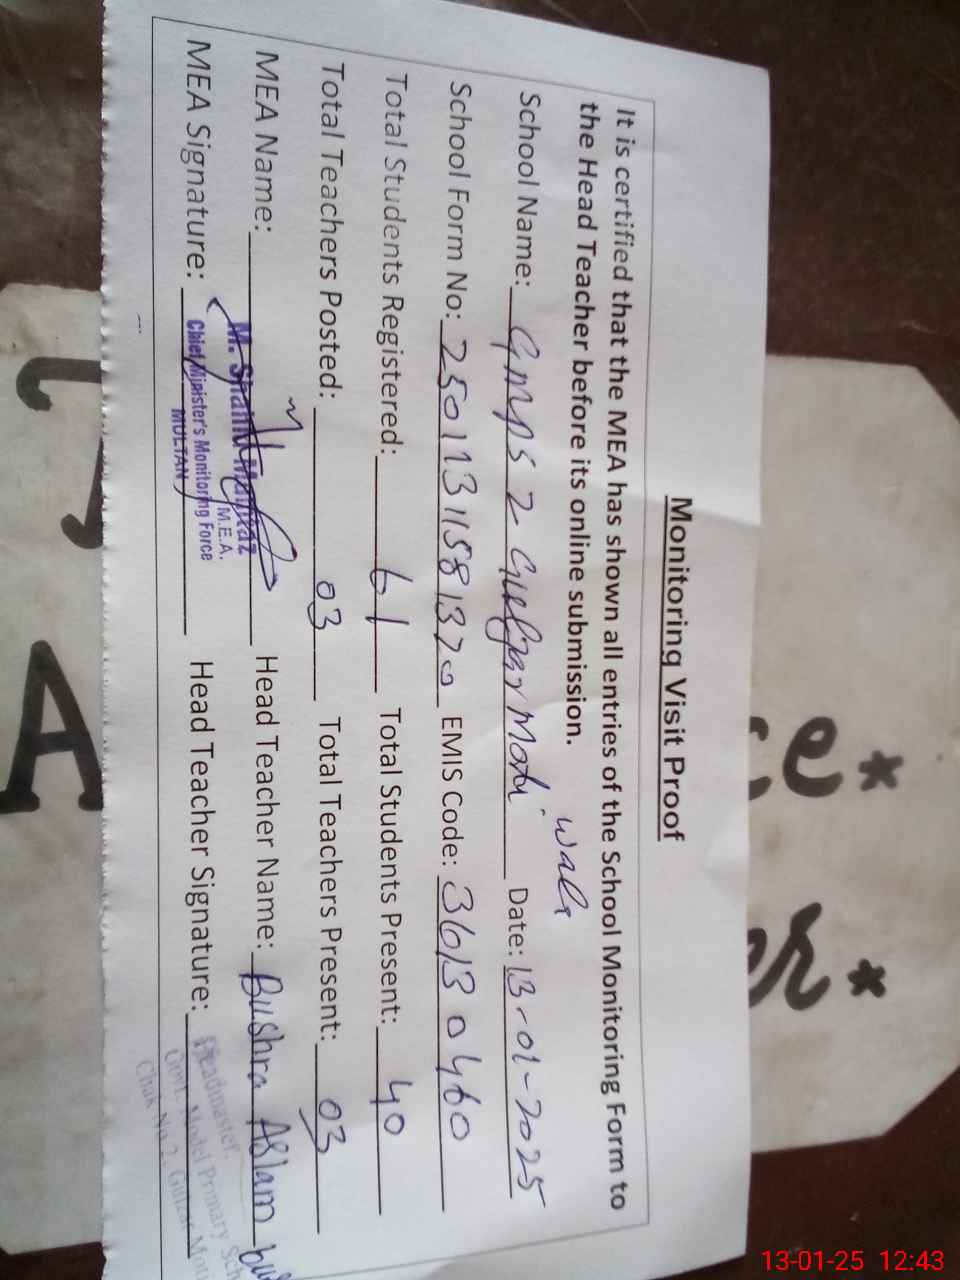 Monitoring Visit Proof
It is certified that the MEA has shown all entries of the School Monitoring Form to
the Head Teacher before its online submission.
School Name: GMPS 2- Gulzar Moti wala Date: 13-01-2025
School Form No: 25011311581320 EMIS Code: 36130460
Total Students Registered: 61 Total Students Present: 40
Total Teachers Posted: 03 Total Teachers Present: 03
MEA Name: Head Teacher Name: Bushra Aslam
MEA Signature: Head Teacher Signature:
M.E.A.
Chief Minister's Monitoring Force
MULTAN
Headmaster,
Govt. Model Primary Sch
Chak No 2, Gulzar
13-01-25 12:43